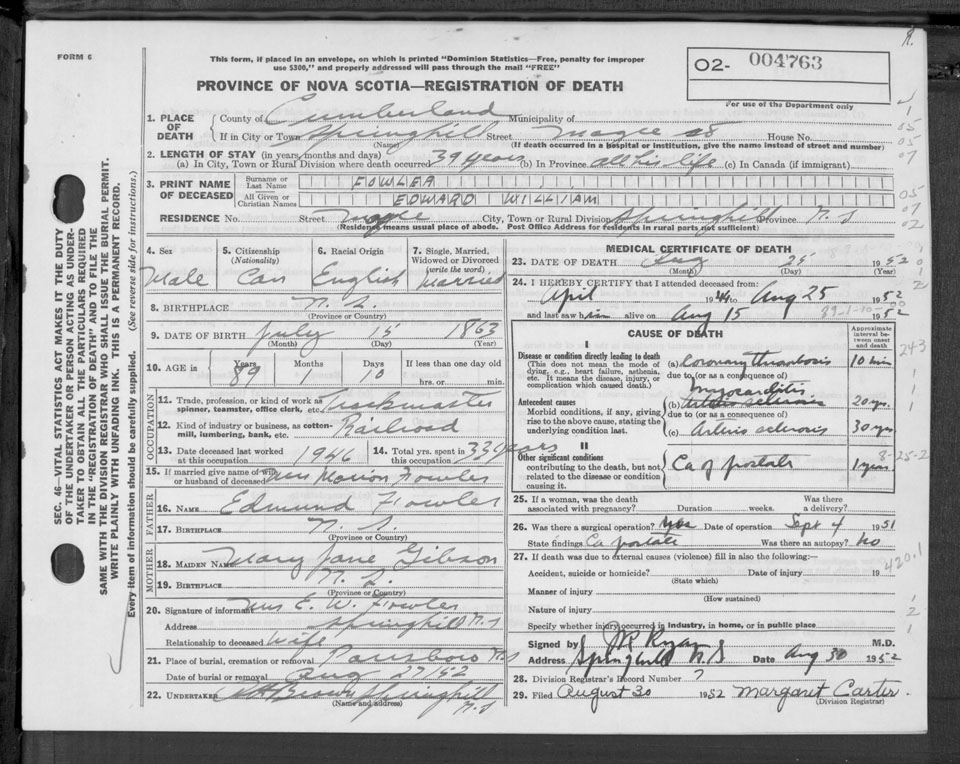 FORM 6
This form, if placed in an envelope, on which is printed "Dominion Statistics—Free, penalty for improper
use $300," and properly addressed will pass through the mail "FREE"
02- 004763
PROVINCE OF NOVA SCOTIA—REGISTRATION OF DEATH
For use of the Department only
1. PLACE OF DEATH
County of Cumberland Municipality of
If in City or Town Springhill Street Magee St House No.
(Name) (If death occurred in a hospital or institution, give the name instead of street and number)
2. LENGTH OF STAY (in years, months and days)
(a) In City, Town or Rural Division where death occurred 39 years (b) In Province all his life (c) In Canada (if immigrant)
3. PRINT NAME OF DECEASED
Surname or Last Name FOWLER
All Given or Christian Names EDWARD WILLIAM
RESIDENCE No. Street Magee City, Town or Rural Division Springhill Province N.S
(Residence means usual place of abode. Post Office Address for residents in rural parts not sufficient)
4. Sex Male
5. Citizenship (Nationality) Can
6. Racial Origin English
7. Single, Married, Widowed or Divorced (write the word) Married
8. BIRTHPLACE N.S.
(Province or Country)
9. DATE OF BIRTH July 15 1863
(Month) (Day) (Year)
10. AGE Years 89 Months 1 Days 10 If less than one day old
hrs. or min.
OCCUPATION
11. Trade, profession, or kind of work as spinner, teamster, office clerk, etc. Trackmaster
12. Kind of industry or business, as cotten-mill, lumbering, bank, etc. Railroad
13. Date deceased last worked at this occupation 1946
14. Total yrs. spent in this occupation 33 years
15. If married give name of wife or husband of deceased Mrs Marion Fowler
FATHER
16. NAME Edmund Fowler
17. BIRTHPLACE N.S.
(Province or Country)
MOTHER
18. MAIDEN NAME Mary Jane Gibson
19. BIRTHPLACE N.S.
(Province or Country)
20. Signature of informant Mrs E. W. Fowler
Address Springhill N.S
Relationship to deceased Wife
21. Place of burial, cremation or removal Parrsboro N.S
Date of burial or removal Aug 27/52
22. UNDERTAKER Brown Springhill
(Name and address) N.S
MEDICAL CERTIFICATE OF DEATH
23. DATE OF DEATH Aug 25 1952
(Month) (Day) (Year)
24. I HEREBY CERTIFY that I attended deceased from:
April 1944 to Aug 25 1952
and last saw him alive on Aug 15 1952
89-1-10
CAUSE OF DEATH
Approximate interval between onset and death
I
Disease or condition directly leading to death
(This does not mean the mode of dying, e.g., heart failure, asthenia, etc. It means the disease, injury, or complication which caused death.)
(a) Coronary thrombosis 10 min
due to (or as a consequence of)
Antecedent causes
Morbid conditions, if any, giving rise to the above cause, stating the underlying condition last.
myocarditis
(b) Arterio sclerosis 20 yrs.
due to (or as a consequence of)
(c) Arterio sclerosis 30 yrs
II
Other significant conditions
contributing to the death, but not related to the disease or condition causing it.
Ca of prostate 1 year.
243
8-25-2
25. If a woman, was the death associated with pregnancy? Duration weeks. Was there a delivery?
26. Was there a surgical operation? Yes Date of operation Sept 4 1951
State findings Ca prostate Was there an autopsy? No
27. If death was due to external causes (violence) fill in also the following:—
420.1
Accident, suicide or homicide? Date of injury 19
(State which)
Manner of injury
(How sustained)
Nature of injury
Specify whether injury occurred in industry, in home, or in public place
Signed by JR Ryan M.D.
Address Springhill N.S Date Aug 30 1952
28. Division Registrar's Record Number 7
29. Filed August 30 1952 Margaret Carter.
(Division Registrar)
SEC. 46—VITAL STATISTICS ACT MAKES IT THE DUTY
OF THE UNDERTAKER OR PERSON ACTING AS UNDER-
TAKER TO OBTAIN ALL THE PARTICULARS REQUIRED
IN THE "REGISTRATION OF DEATH" AND TO FILE THE
SAME WITH THE DIVISION REGISTRAR WHO SHALL ISSUE THE BURIAL PERMIT.
WRITE PLAINLY WITH UNFADING INK. THIS IS A PERMANENT RECORD.
Every item of information should be carefully supplied. (See reverse side for instructions.)